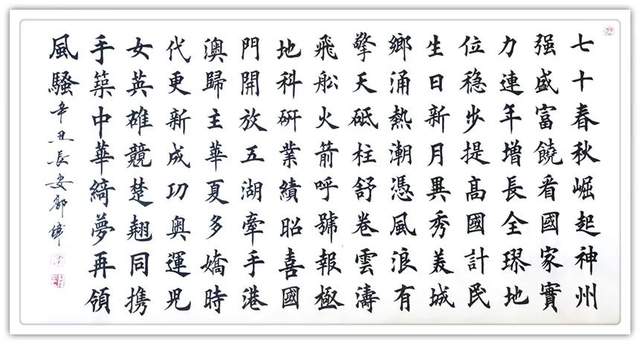 七十春秋崛起神州
强盛富饒看國家實
力連年增長全璆地
位稳步提高國計民
生日新月異秀美城
鄉涌熱潮憑風浪有
擎天砥柱舒卷雲濤
飛船火箭呼號報極
地科研業績昭喜國
門開放五湖牽手港
澳歸主華夏多嬌時
代更新成功奥運兒
女英雄競楚翹同携
手築中華綺夢再領
風騷辛丑長安